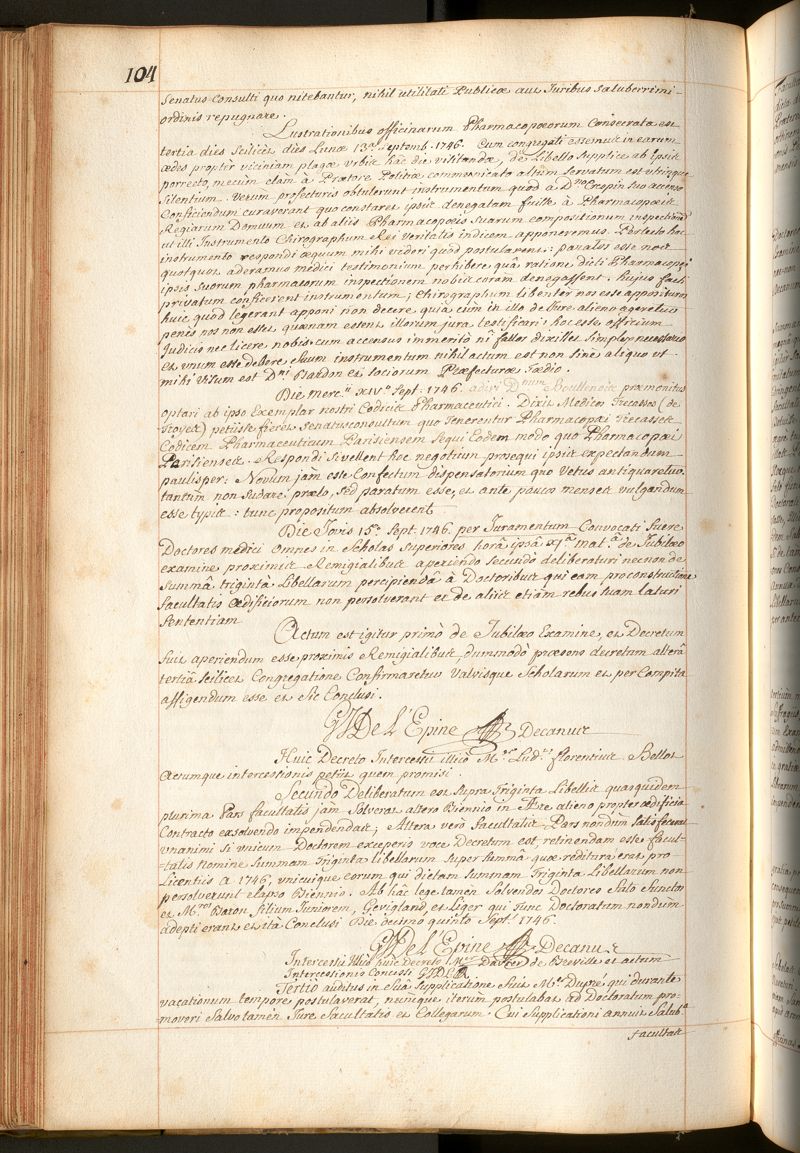 104
Senatus-Consulti quo nitebantur, nihil utilitati Publicæ aut Juribus saluberrimi
ordinis repugnare.
Lustrationibus officinarum Pharmacopæorum Consecrata est
tertia dies scilicet dies Lunæ 13ª Septemb. 1746. Cum congregati essemus in earum
ædes propter viciniam plagæ urbis hac die visitandæ, de Libello Supplice ab ipsis
porrecto, mecum clàm à Prætore Politiæ communicato altum servatum est utrinque
silentium. Verum profecturis obtulerunt instrumentum quod à Dno Crepin suo accenso
Conficiendum curaverant quo constaret ipsis denegatam fuisse à Pharmacopæis
Regiarum Domuum et ab aliis Pharmacopæis suarum compositionum inspectionem
ut illi Instrumento Chirographum Rei veritatis indicem apponeremus. Perlecto hoc
instrumento respondi æquum mihi videri quod postularent: paratos esse nos
quotquot aderamus medici testimonium perhibere quâ ratione dicti Pharmacopæi
ipsis suorum pharmacorum inspectionem nobis coram denegassent. Hujus facti
privatum conficerent instrumentum; Chirographum libenter nos esse apposituros
huic quod legerant apponi non decere quia cum in illo de Jure alieno ageretur
penes nos non esset quænam essent illorum jura testificari: hoc esse officium
Judicis nec licere nobis: cum accensus immeritò ni fallor dixisset simplex necessario
et unum esse debere suum instrumentum nihil actum est non sine aliquo ut
mihi visum est Dni Bardon et sociorum Præfecturæ tædio.
Die Merc.ii XIV.ª Sept. 1746. adivi Dnum Boullenois præmonitus
optari ab ipso Exemplar nostri Codicis Pharmaceutici. Dixit Medicos Trecasses (de
Troyes) petiisse fieret senatusconsultum quo tenerentur Pharmacopæi Trecasses
Codicem Pharmaceuticum Parisiensem sequi eodem modo quo Pharmacopæi
Parisienses. Respondi si vellent hoc negotium prosequi ipsis expectandum
paulisper: Novum jam esse Confectum dispensatorium quo vetus antiquaretur
tantùm non sudare prælo, sed paratum esse, et ante paucos menses vulgandum
esse typis: tunc propositum absolverent
Die Jovis 15ª Sept. 1746. per Juramentum Convocati fuere
Doctores medici omnes in Scholas superiores horâ ipsâ XIª mat.ª de Jubilæo
examine proximis Remigialibus aperiendo secundò deliberaturi necnon de
summâ triginta Libellarum percipiendâ à Doctoribus qui eam pro constructione
facultatis ædificiorum non persolverant et de aliis etiam rebus suam laturi
sententiam
Actum est igitur primò de Jubilæo Examine, et Decretum
fuit aperiendum esse proximis Remigialibus, dummodò præsens decretum alterâ
tertiâ scilicet Congregatione Confirmaretur Valvisque Scholarum et per Compita
affigendum esse et sic Conclusi.
G J De L'Epine Decanus
Huic Decreto Intercessit illico Mer Lud.us florentius Bellot
Actumque intercessionis petiit quem promisi.
Secundo Deliberatum est supra triginta Libellis quas quidem
plurima Pars facultatis jam solverat altero Biennio in Ære alieno propter ædificia
Contracto exsolvendo impendendas; Altera verò facultatis Pars nondùm satisfecerat
unanimi si unicum Doctorem exceperis voce Decretum est retinendam esse facul-
=tatis nomine summam triginta libellarum super summâ quæ reditura erat pro
Licentiis a 1746, unicuique eorum qui dictam summam triginta Libellarum non
persolverunt elapso Biennio. Ab hâc lege tamen salvendos Doctores fato functos
et M.ros Baron filium Juniorem, Gevigland, et Leger qui tunc Doctoratum nondùm
adepti erant et ità Conclusi Die decimo quinto Sept.i 1746.
G J De L'Epine Decanus
Intercessit illico huic decreto Mer de Breville et actum
Intercessionis Concessi G J D L
Tertiò auditus in suâ supplicatione fuit Mer Dupré qui durante
vacationum tempore postulaverat, nuncque iterum postulabat ad Doctoratum pro-
moveri salvo tamen Jure facultatis et Collegarum. Cui supplicationi annuit salub.ª
facultas